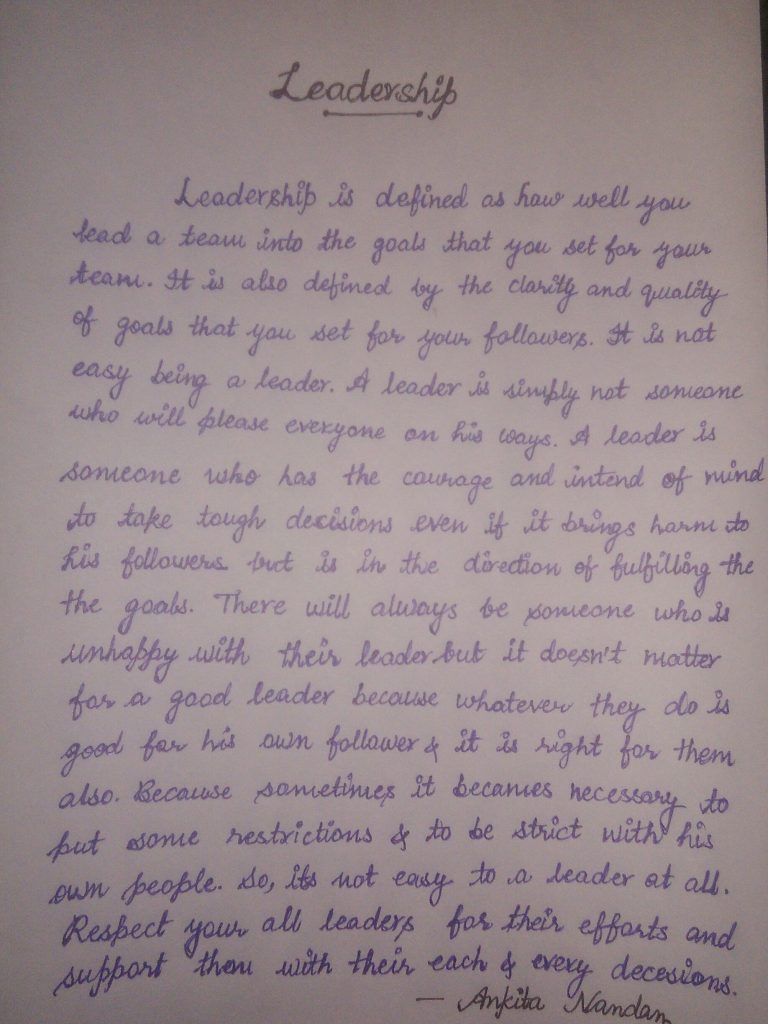 Leadership
Leadership is defined as how well you
lead a team into the goals that you set for your
team. It is also defined by the clarity and quality
of goals that you set for your followers. It is not
easy being a leader. A leader is simply not someone
who will please everyone on his ways. A leader is
someone who has the courage and intend of mind
to take tough decisions even if it brings harm to
his followers but is in the direction of fulfilling the
the goals. There will always be someone who is
unhappy with their leader but it doesn't matter
for a good leader because whatever they do is
good for his own follower & it is right for them
also. Because sometimes it becomes necessary to
put some restrictions & to be strict with his
own people. So, its not easy to a leader at all.
Respect your all leaders for their efforts and
support them with their each & every decesions.
— Ankita Nandan